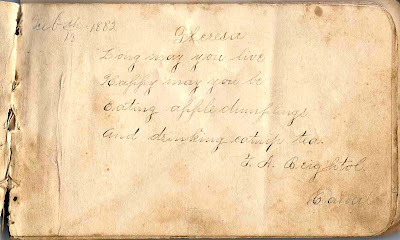 13 1882
Theresa
Long may you live
Happy may you be
Eating apple dumplings
And drinking catnip tea.